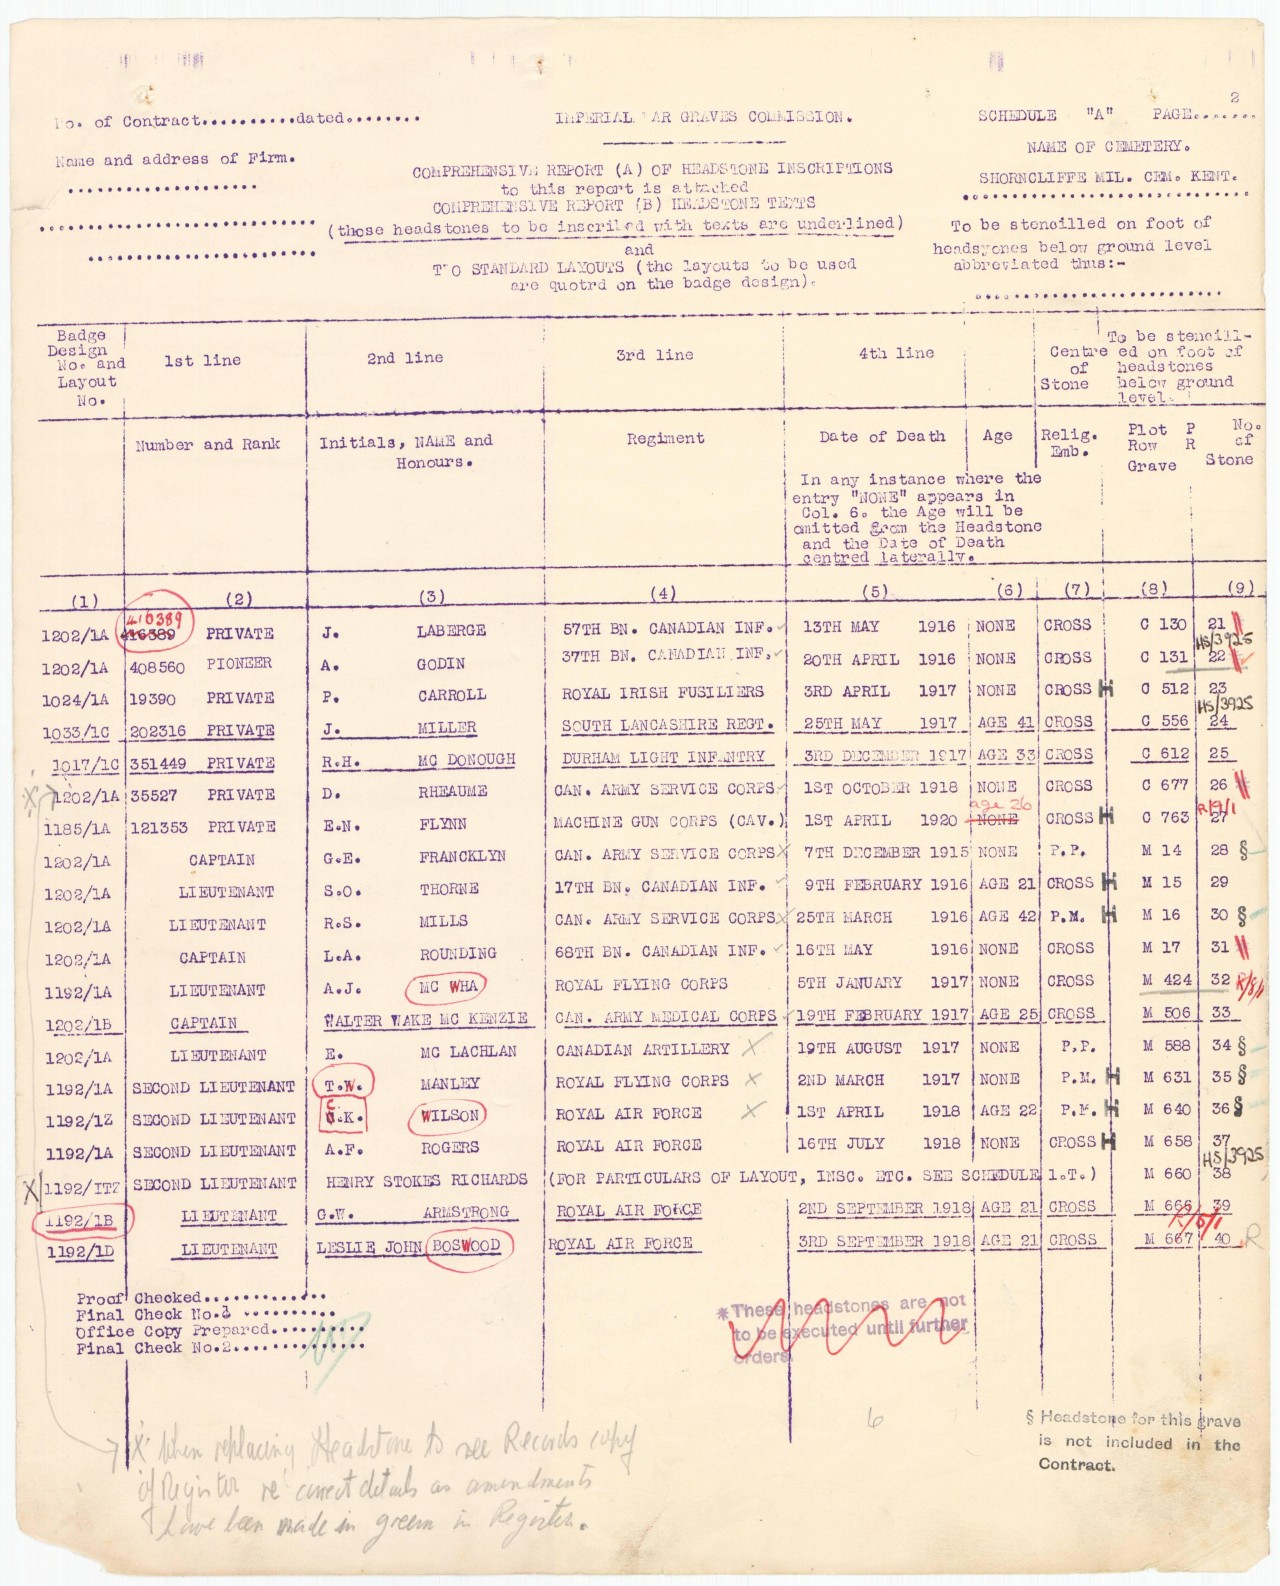 No. of Contract..........dated........
IMPERIAL WAR GRAVES COMMISSION.
SCHEDULE "A" PAGE.......
2
Name and address of Firm.
NAME OF CEMETERY.
COMPREHENSIVE REPORT (A) OF HEADSTONE INSCRIPTIONS
SHORNCLIFFE MIL. CEM. KENT.
to this report is attached
COMPREHENSIVE REPORT (B) HEADSTONE TEXTS
(those headstones to be inscribed with texts are underlined)
To be stencilled on foot of
and
headsyones below ground level
TWO STANDARD LAYOUTS (the layouts to be used
abbreviated thus:-
are quotrd on the badge design).
Badge Design No. and Layout No.
1st line
2nd line
3rd line
4th line
Centre of Stone
To be stencill-ed on foot of headstones below ground level.
Number and Rank
Initials, NAME and Honours.
Regiment
Date of Death
Age
Relig. Emb.
Plot Row Grave
P R
No. of Stone
In any instance where the
entry "NONE" appears in
Col. 6. the Age will be
omitted from the Headstone
and the Date of Death
centred laterally.
(1) (2) (3) (4) (5) (6) (7) (8) (9)
410389
1202/1A 416389 PRIVATE J. LABERGE 57TH BN. CANADIAN INF. 13TH MAY 1916 NONE CROSS C 130 21
HS/3925
1202/1A 408560 PIONEER A. GODIN 37TH BN. CANADIAN INF. 20TH APRIL 1916 NONE CROSS C 131 22
1024/1A 19390 PRIVATE P. CARROLL ROYAL IRISH FUSILIERS 3RD APRIL 1917 NONE CROSS H C 512 23
HS/3925
1033/1C 202316 PRIVATE J. MILLER SOUTH LANCASHIRE REGT. 25TH MAY 1917 AGE 41 CROSS C 556 24
1017/1C 351449 PRIVATE R.H. MC DONOUGH DURHAM LIGHT INFANTRY 3RD DECEMBER 1917 AGE 33 CROSS C 612 25
X 1202/1A 35527 PRIVATE D. RHEAUME CAN. ARMY SERVICE CORPS 1ST OCTOBER 1918 NONE CROSS C 677 26
age 26 R/9/1
1185/1A 121353 PRIVATE E.N. FLYNN MACHINE GUN CORPS (CAV.) 1ST APRIL 1920 NONE CROSS H C 763 27
1202/1A CAPTAIN G.E. FRANCKLYN CAN. ARMY SERVICE CORPS X 7TH DECEMBER 1915 NONE P.P. M 14 28 §
1202/1A LIEUTENANT S.O. THORNE 17TH BN. CANADIAN INF. 9TH FEBRUARY 1916 AGE 21 CROSS H M 15 29
1202/1A LIEUTENANT R.S. MILLS CAN. ARMY SERVICE CORPS X 25TH MARCH 1916 AGE 42 P.M. H M 16 30 §
1202/1A CAPTAIN L.A. ROUNDING 68TH BN. CANADIAN INF. 16TH MAY 1916 NONE CROSS M 17 31
1192/1A LIEUTENANT A.J. MC WHA ROYAL FLYING CORPS 5TH JANUARY 1917 NONE CROSS M 424 32 R/8/1
1202/1B CAPTAIN WALTER WAKE MC KENZIE CAN. ARMY MEDICAL CORPS 19TH FEBRUARY 1917 AGE 25 CROSS M 506 33
1202/1A LIEUTENANT E. MC LACHLAN CANADIAN ARTILLERY X 19TH AUGUST 1917 NONE P.P. M 588 34 §
1192/1A SECOND LIEUTENANT T.W. MANLEY ROYAL FLYING CORPS X 2ND MARCH 1917 NONE P.M. H M 631 35 §
1192/1Z SECOND LIEUTENANT C.K. WILSON ROYAL AIR FORCE X 1ST APRIL 1918 AGE 22 P.M. H M 640 36 §
1192/1A SECOND LIEUTENANT A.F. ROGERS ROYAL AIR FORCE 16TH JULY 1918 NONE CROSS H M 658 37
HS/3925
X 1192/ITZ SECOND LIEUTENANT HENRY STOKES RICHARDS (FOR PARTICULARS OF LAYOUT, INSC. ETC. SEE SCHEDULE 1.T.) M 660 38
1192/1B LIEUTENANT G.W. ARMSTRONG ROYAL AIR FORCE 2ND SEPTEMBER 1918 AGE 21 CROSS M 666 39
R/6/1
1192/1D LIEUTENANT LESLIE JOHN BOSWOOD ROYAL AIR FORCE 3RD SEPTEMBER 1918 AGE 21 CROSS M 667 40 R
Proof Checked.............
Final Check No.1 ..........
Office Copy Prepared..........
Final Check No.2..............
*These headstones are not
to be executed until further
orders.
6
§ Headstone for this grave
is not included in the
Contract.
X When replacing Headstone to see Records copy
of Register re correct details as amendments
have been made in green in Register.